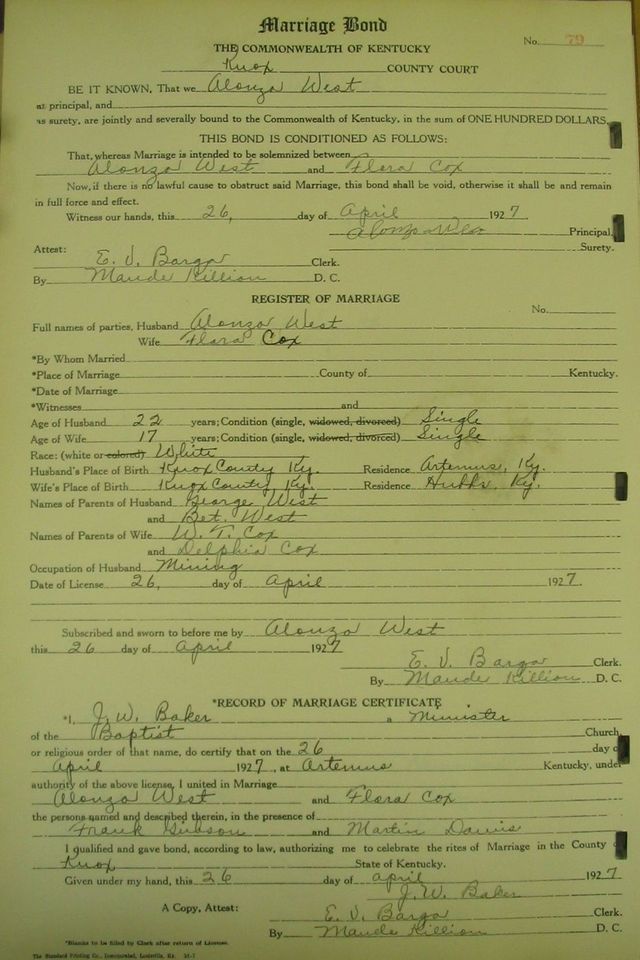 Marriage Bond
No. 79
THE COMMONWEALTH OF KENTUCKY
Knox COUNTY COURT
BE IT KNOWN, That we Alonzo West
as principal, and
as surety, are jointly and severally bound to the Commonwealth of Kentucky, in the sum of ONE HUNDRED DOLLARS.
THIS BOND IS CONDITIONED AS FOLLOWS:
That, whereas Marriage is intended to be solemnized between
Alonzo West and Flora Cox
Now, if there is no lawful cause to obstruct said Marriage, this bond shall be void, otherwise it shall be and remain
in full force and effect.
Witness our hands, this 26, day of April 1927
Alonzo West Principal,
Surety.
Attest:
E. V. Bargo Clerk.
By Maude Killion D. C.
REGISTER OF MARRIAGE
No.
Full names of parties, Husband Alonzo West
Wife Flora Cox
*By Whom Married
*Place of Marriage County of Kentucky.
*Date of Marriage
*Witnesses and
Age of Husband 22 years; Condition (single, widowed, divorced) Single
Age of Wife 17 years; Condition (single, widowed, divorced) Single
Race: (white or colored) White
Husband's Place of Birth Knox County Ky. Residence Artemus, Ky.
Wife's Place of Birth Knox County, Ky. Residence Hubbs, Ky.
Names of Parents of Husband George West
and Bet. West
Names of Parents of Wife W. T. Cox
and Delphia Cox
Occupation of Husband Mining
Date of License 26, day of April 1927.
Subscribed and sworn to before me by Alonzo West
this 26 day of April 1927
E. V. Bargo Clerk.
By Maude Killion D. C.
*RECORD OF MARRIAGE CERTIFICATE
*I, J. W. Baker a Minister
of the Baptist Church,
or religious order of that name, do certify that on the 26 day of
April 1927, at Artemus Kentucky, under
authority of the above license, I united in Marriage
Alonzo West and Flora Cox
the persons named and described therein, in the presence of
Frank Gibson and Martin Davis
I qualified and gave bond, according to law, authorizing me to celebrate the rites of Marriage in the County
Knox State of Kentucky.
Given under my hand, this 26 day of April 1927
J. W. Baker
A Copy, Attest: E. V. Bargo Clerk.
By Maude Killion D. C.
*Blanks to be filled by Clerk after return of License.
The Standard Printing Co., Incorporated, Louisville, Ky.